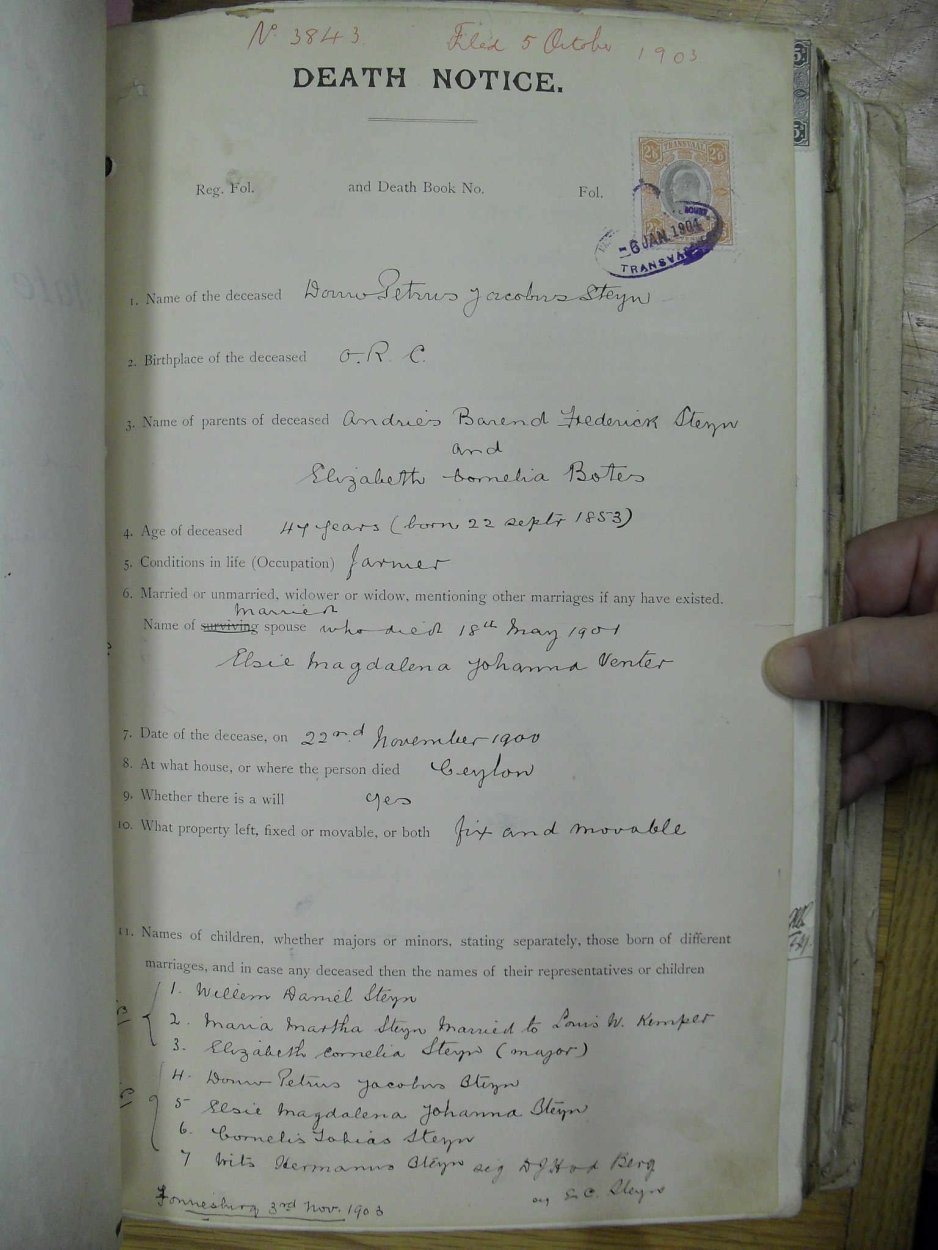 No 3843 Filed 5 October 1903
DEATH NOTICE.
Reg. Fol. and Death Book No. Fol.
TRANSVAAL
2/6 2/6
-6 JAN. 1904
TRANSVAAL
1. Name of the deceased Douw Petrus Jacobus Steyn
2. Birthplace of the deceased O. R. C.
3. Name of parents of deceased Andries Barend Frederick Steyn
and
Elizabeth Cornelia Botes
4. Age of deceased 47 years (born 22 septr 1853)
5. Conditions in life (Occupation) farmer
6. Married or unmarried, widower or widow, mentioning other marriages if any have existed.
married
Name of surviving spouse who died 18th May 1901
Elsie Magdalena Johanna Venter
7. Date of the decease, on 22nd November 1900
8. At what house, or where the person died Ceylon
9. Whether there is a will yes
10. What property left, fixed or movable, or both fix and movable
11. Names of children, whether majors or minors, stating separately, those born of different
marriages, and in case any deceased then the names of their representatives or children
1. Willem Daniel Steyn
2. Maria Martha Steyn Married to Louis W. Kemper
3. Elizabeth Cornelia Steyn (major)
4. Douw Petrus Jacobus Steyn
5 Elsie Magdalena Johanna Steyn
6. Cornelis Tobias Steyn
7 Frits Hermanus Steyn sig Berg
3rd Nov. 1903 E. C. Steyn